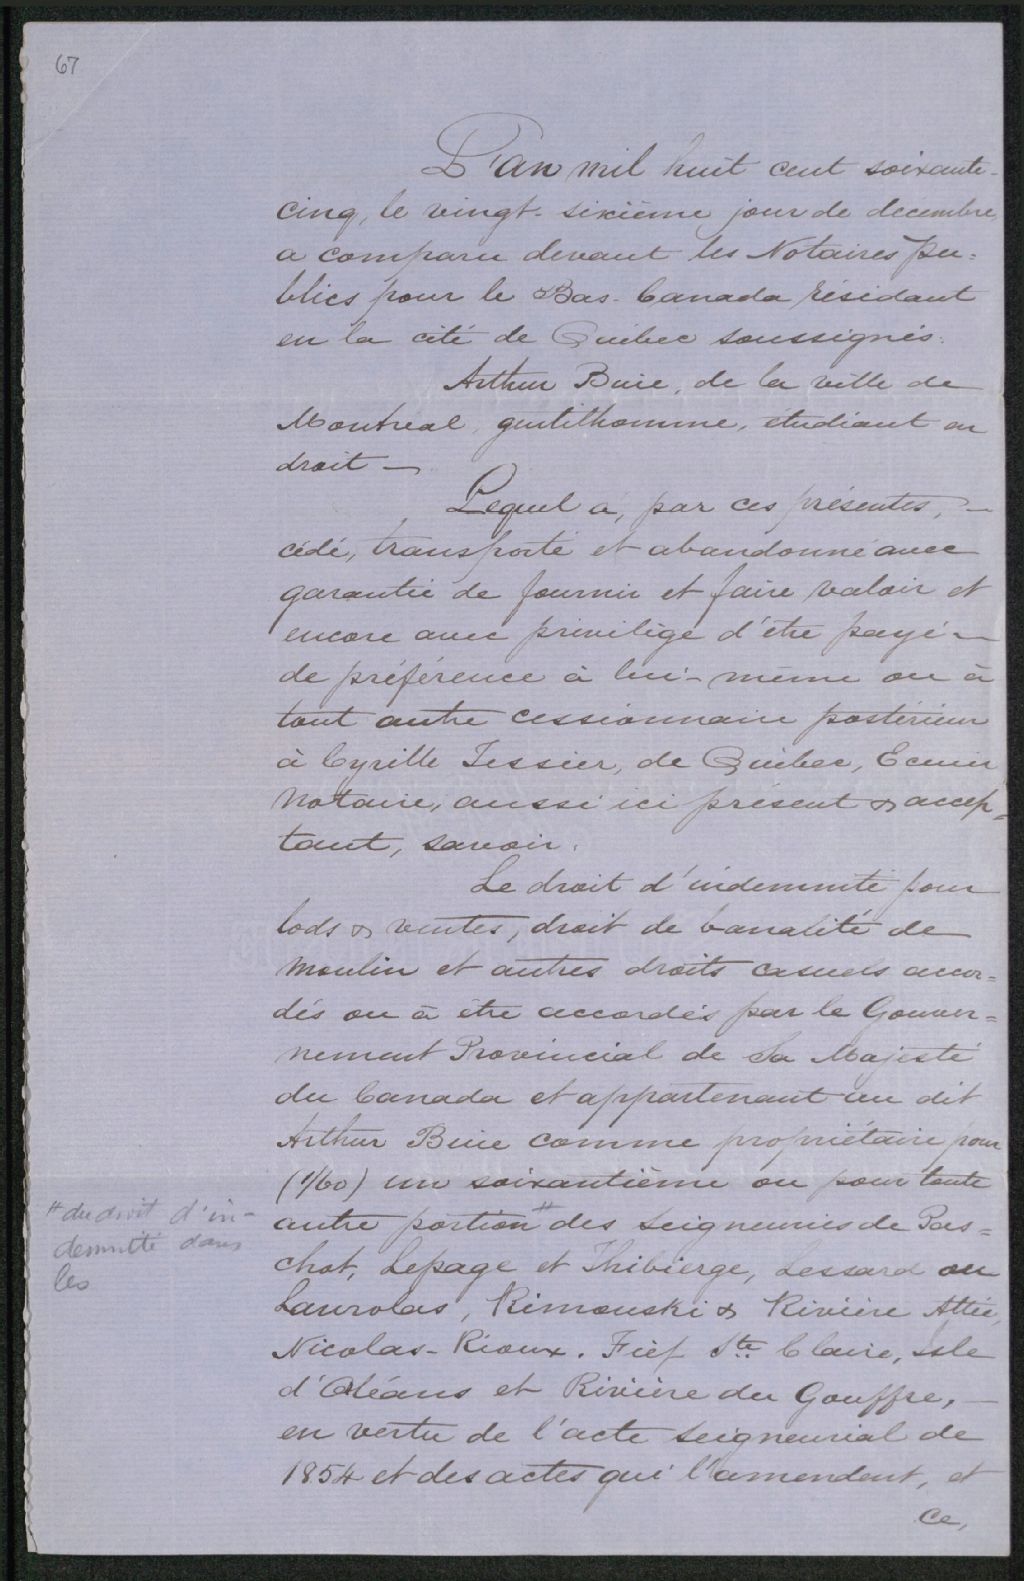 67
L'an mil huit cent soixante-
cinq, le vingt-sixième jour de decembre,
a comparu devant les Notaires pu=
blics pour le Bas-Canada résidant
en la cité de Québec soussignés:
Arthur Buie, de la ville de
Montréal, gentilhomme, étudiant en
droit —
Lequel a, par ces présentes, —
cédé, transporté et abandonné avec
garantie de fournir et faire valoir et
encore avec privilège d'être payé —
de préférence à lui-même ou à
tout autre cessionnaire postérieur
à Cyrille Tessier, de Québec, Ecuier
Notaire, aussi ici présent & accep=
tant, savoir:
Le droit d'indemnité pour
lods & ventes, droit de banalité de
moulin et autres droits casuels accor=
dés ou à être accordés par le Gouver=
nement Provincial de Sa Majesté
du Canada et appartenant au dit
Arthur Buie comme propriétaire pour
(1/60) un soixantième ou pour toute
autre portion # des seigneuries de Pas=
chot, Lepage et Thibierge, Lessard ou
Lavrolas, Rimouski & Rivière Attée,
Nicolas-Rioux. Fief Ste Claire, Isle
d'Orléans et Rivière du Gouffre, —
en vertu de l'acte seigneurial de
1854 et des actes qui l'amendent, et
ce,
# du droit d'in-
demnité dans
les